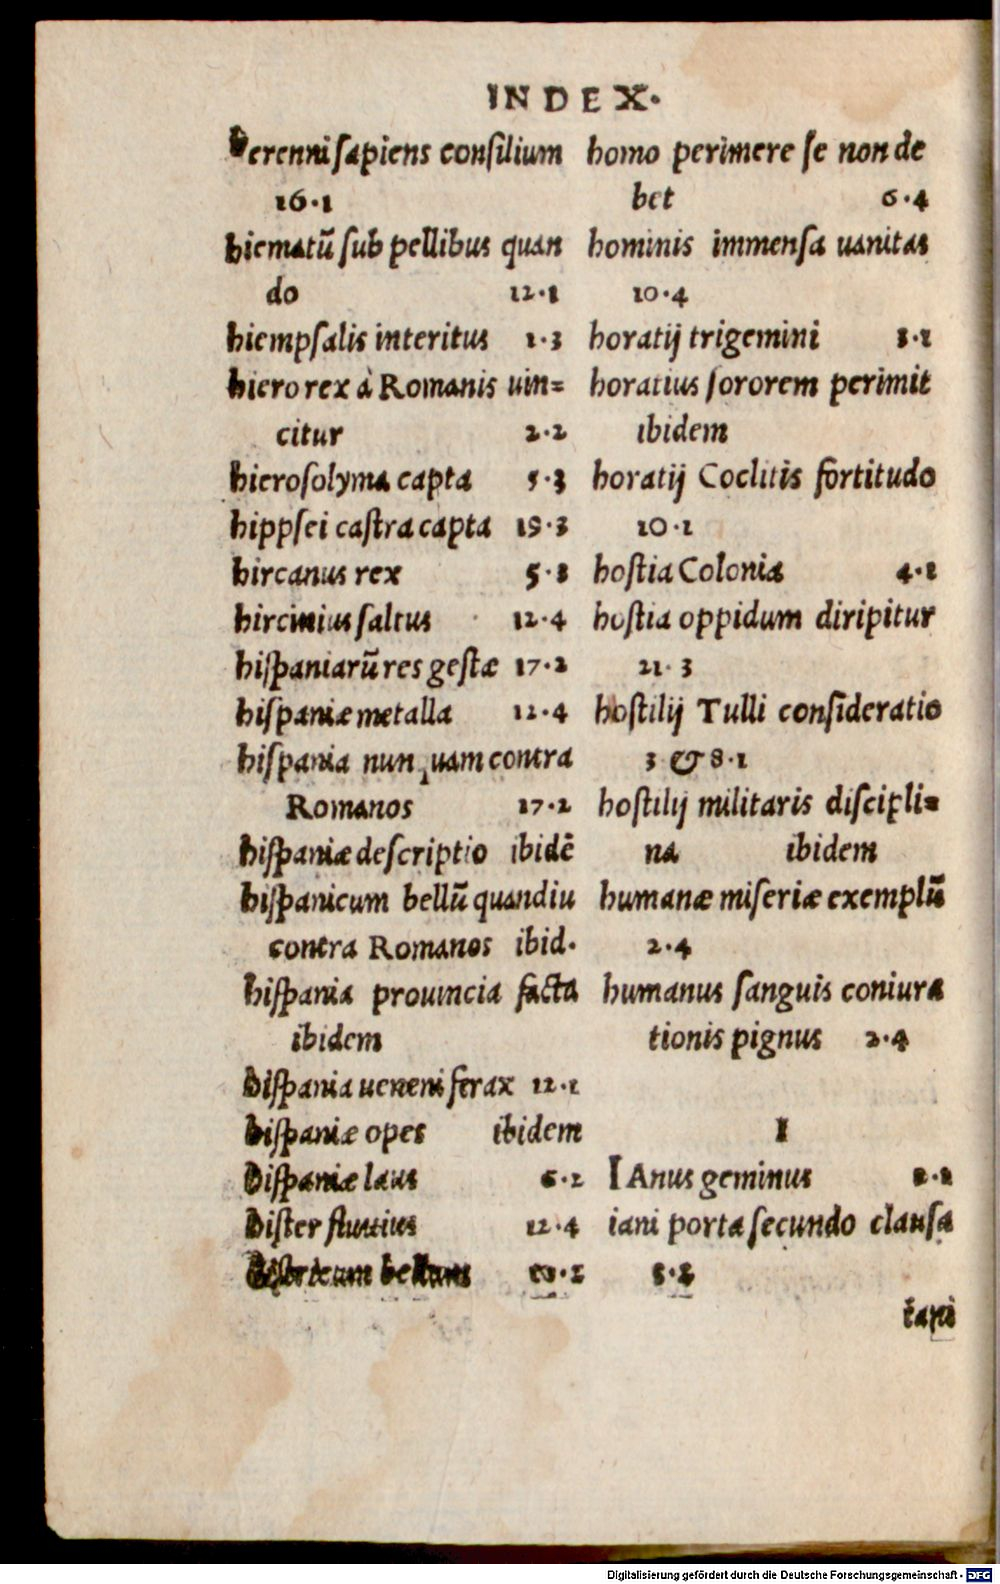 INDEX.
herenni sapiens consilium
16.1
hiematū sub pellibus quan
do 12.1
hiempsalis interitus 1.3
hiero rex à Romanis uin=
citur 2.2
hierosolyma capta 5.3
hippsei castra capta 19.3
hircanus rex 5.3
hircinius saltus 12.4
hispaniarū res gestæ 17.2
hispaniæ metalla 12.4
hispania nunquam contra
Romanos 17.2
hispaniæ descriptio ibidē
hispanicum bellū quandiu
contra Romanos ibid.
hispania prouincia facta
ibidem
hispania ueneni ferax 12.1
hispaniæ opes ibidem
hispaniæ laus 6.2
hister fluuius 12.4
bellum
homo perimere se non de
bet 6.4
hominis immensa uanitas
10.4
horatij trigemini
horatius sororem perimit
ibidem
horatij Coclitis fortitudo
10.1
hostia Colonia 4.1
hostia oppidum diripitur
21.3
hostilij Tulli consideratio
3 & 8.1
hostilij militaris discipli=
na ibidem
humanæ miseriæ exemplū
2.4
humanus sanguis coniura
tionis pignus 2.4
I
IAnus geminus
iani porta secundo clausa
iani
Digitalisierung gefördert durch die Deutsche Forschungsgemeinschaft - DFG